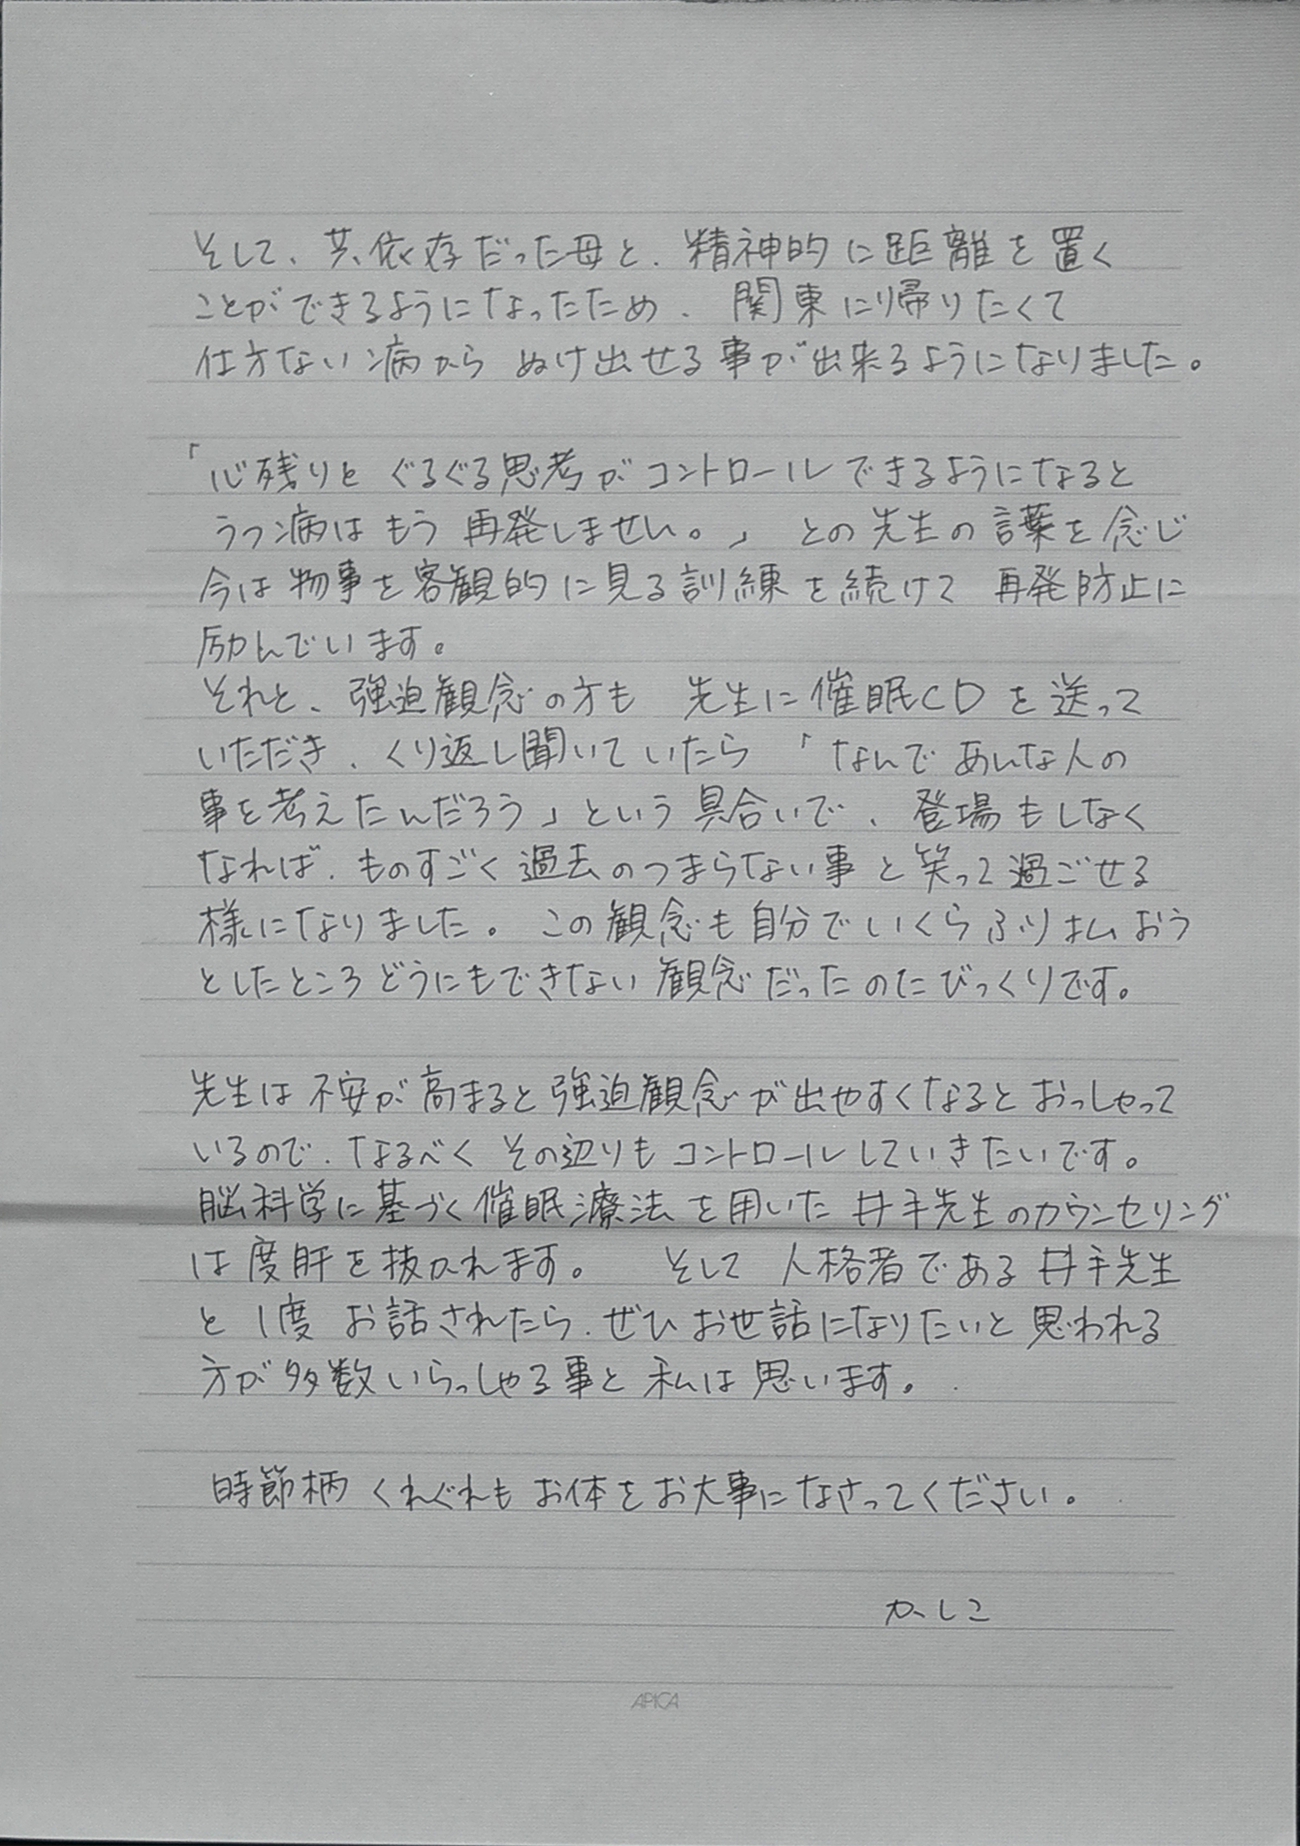 そして、共依存だった母と、精神的に距離を置く
ことができるようになったため、関東に帰りたくて
仕方ない病から ぬけ出せる事が出来るようになりました。
「心残りと ぐるぐる思考が コントロールできるようになると
うつ病は もう 再発しません。」 との先生の言葉を念じ
今は物事を客観的に見る訓練を続けて 再発防止に
励んでいます。
それと、強迫観念の方も 先生に催眠CDを送って
いただき、くり返し聞いていたら 「なんで あんな人の
事を考えたんだろう」という具合いで、登場もしなく
なれば、ものすごく過去のつまらない事と笑って過ごせる
様になりました。この観念も自分でいくらふり払おう
としたところどうにもできない観念だったのたびっくりです。
先生は不安が高まると強迫観念が出やすくなるとおっしゃって
いるので、なるべく その辺りもコントロールしていきたいです。
脳科学に基づく催眠療法を用いた井手先生のカウンセリング
は度肝を抜かれます。 そして 人格者である井手先生
と1度 お話されたら、ぜひお世話になりたいと思われる
方が多数いらっしゃる事と私は思います。
時節柄 くれぐれもお体をお大事になさってください。
かしこ
APICA